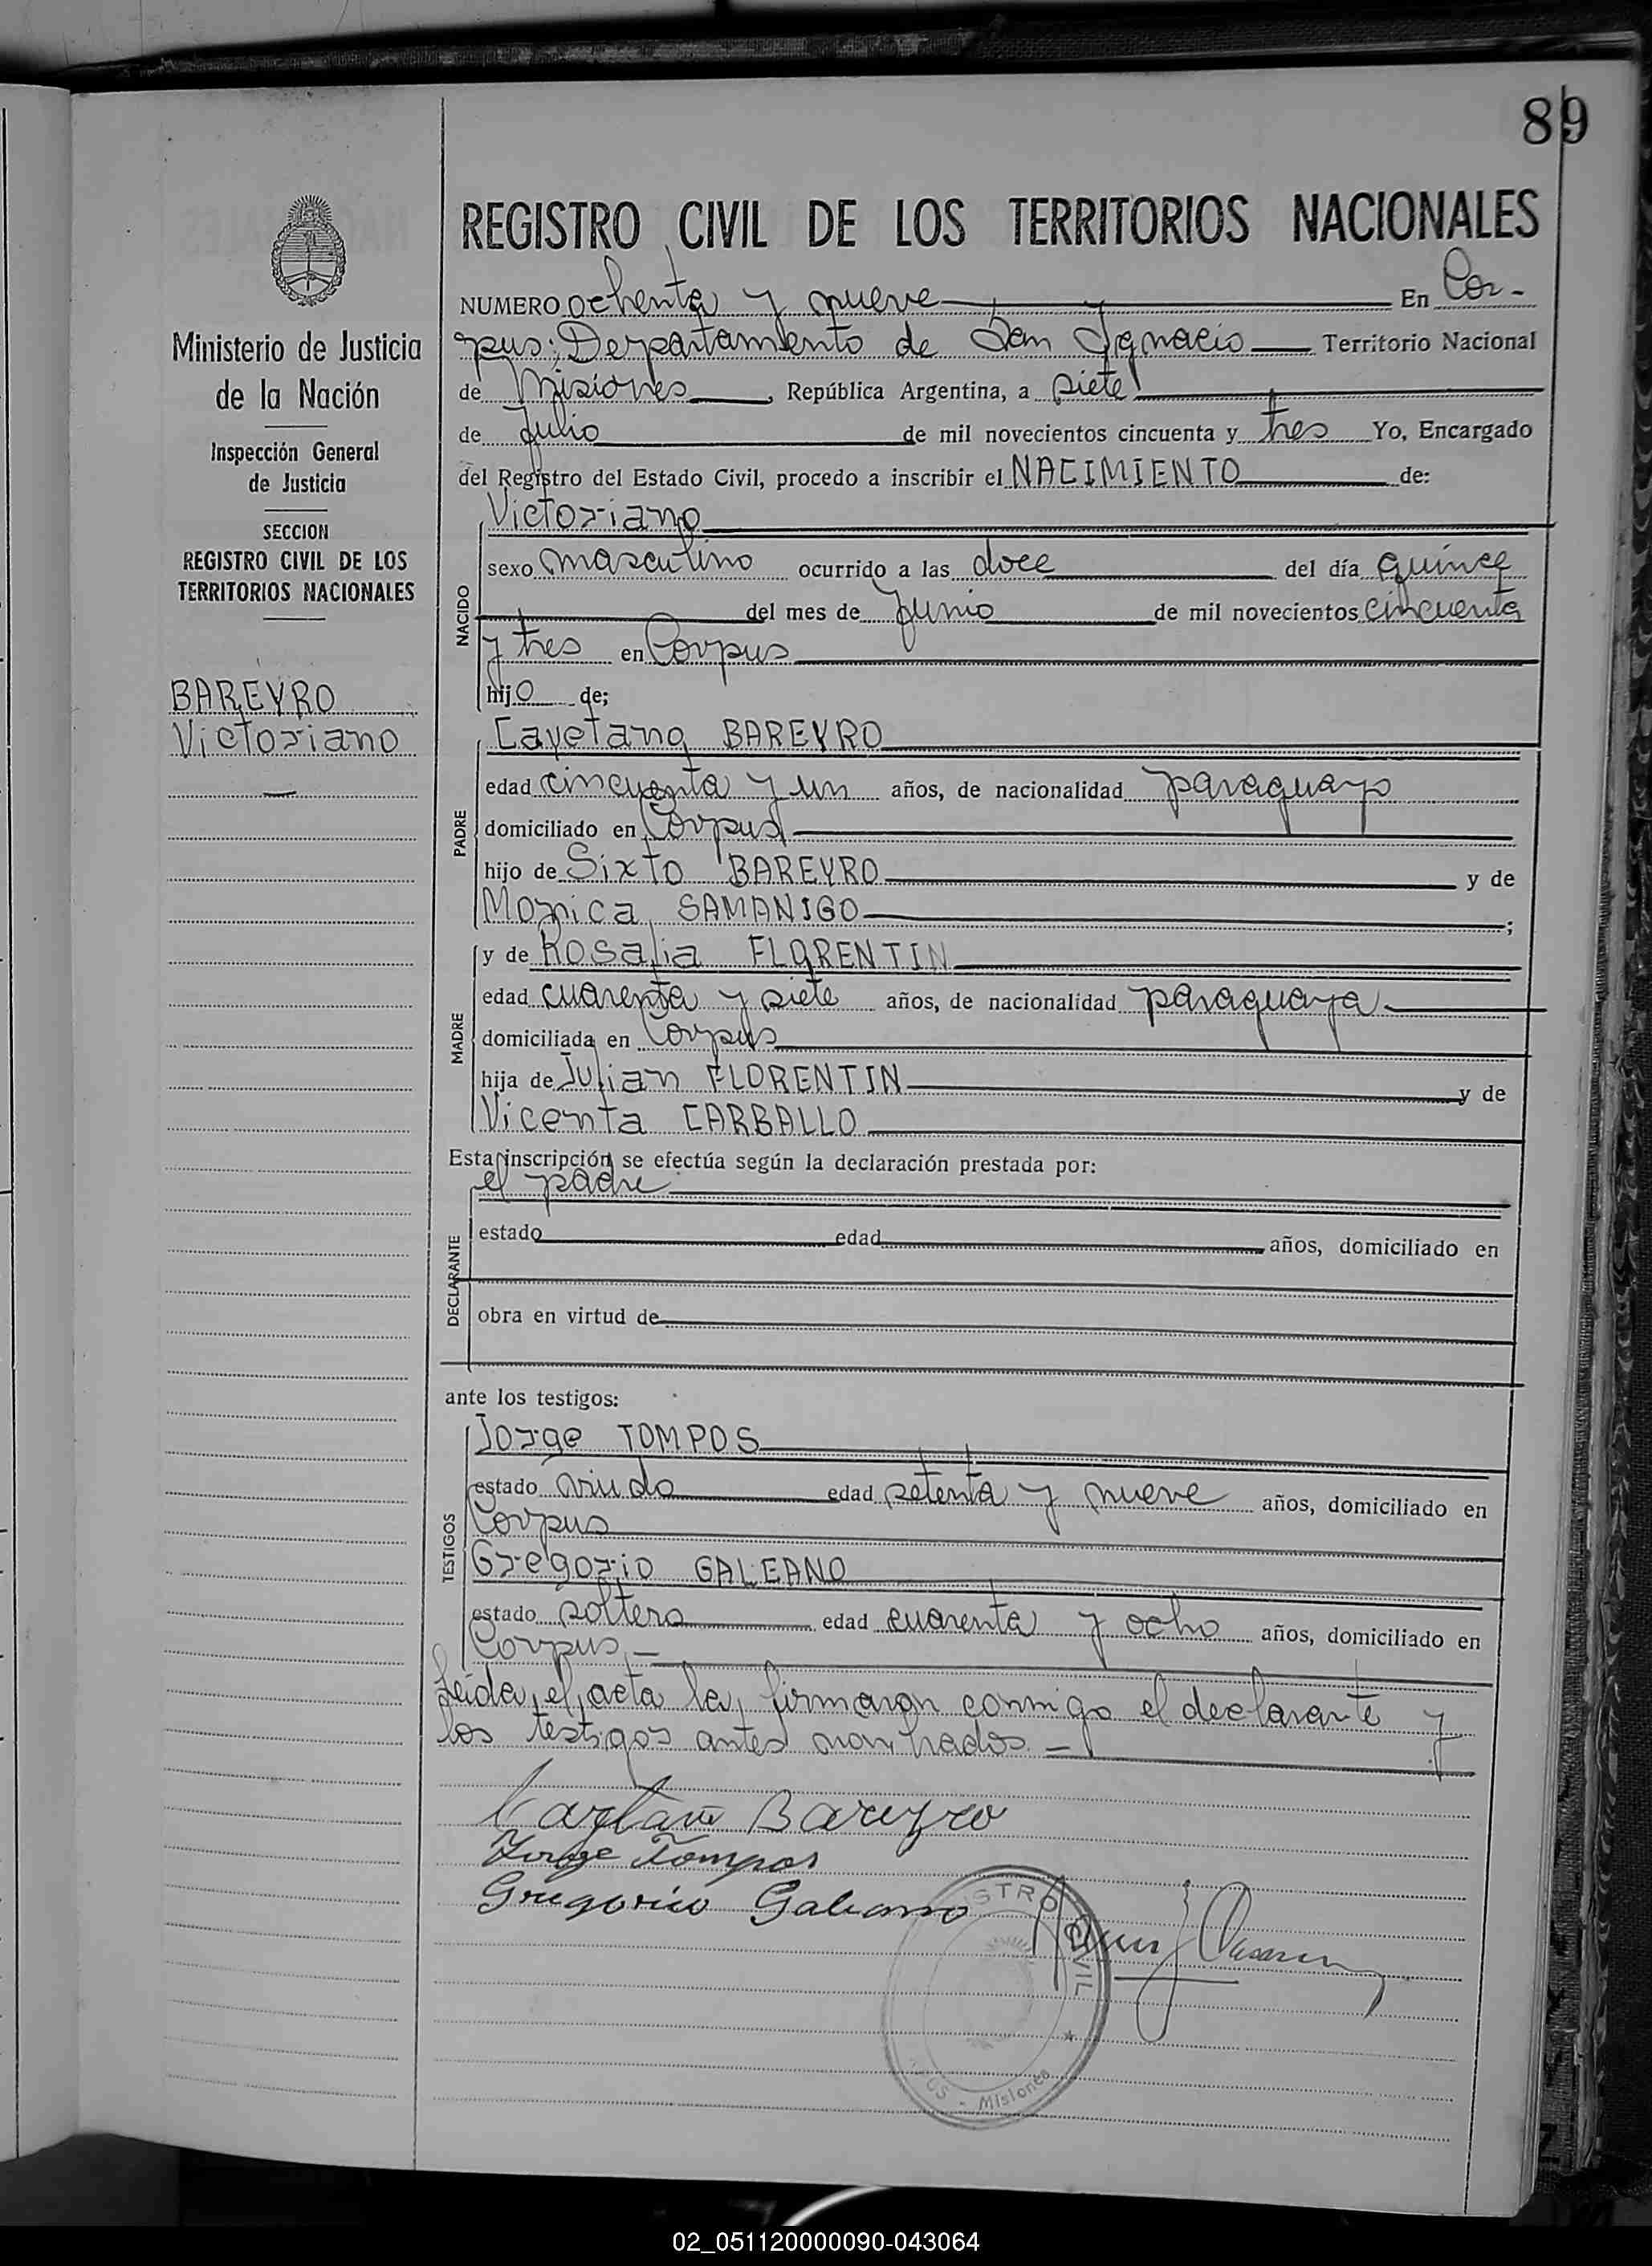 89
REGISTRO CIVIL DE LOS TERRITORIOS NACIONALES
NUMERO ochenta y nueve En Cor-
pus; Departamento de San Ignacio Territorio Nacional
de Misiones, República Argentina, a siete
de Julio de mil novecientos cincuenta y tres Yo, Encargado
del Registro del Estado Civil, procedo a inscribir el NACIMIENTO de:
Victoriano
sexo masculino ocurrido a las doce del día quince
del mes de Junio de mil novecientos cincuenta
y tres en Corpus
hijo de;
NACIDO
Cayetano BAREYRO
edad cincuenta y un años, de nacionalidad paraguayo
domiciliado en Corpus
hijo de Sixto BAREYRO y de
Monica SAMANIGO;
PADRE
y de Rosalia FLORENTIN
edad cuarenta y siete años, de nacionalidad paraguaya
domiciliada en Corpus
hija de Julian FLORENTIN y de
Vicenta CARBALLO
MADRE
Esta inscripción se efectúa según la declaración prestada por:
el padre
estado edad años, domiciliado en
obra en virtud de
DECLARANTE
ante los testigos:
Jorge TOMPOS
estado viudo edad setenta y nueve años, domiciliado en
Corpus
Gregorio GALEANO
estado soltero edad cuarenta y ocho años, domiciliado en
Corpus.-
TESTIGOS
Leida el acta la firmaron conmigo el declarante y
los testigos antes nombrados.-
Cayetano Bareyro
Jorge Tompos
Gregorio Galeano
Ministerio de Justicia
de la Nación
Inspección General
de Justicia
SECCION
REGISTRO CIVIL DE LOS
TERRITORIOS NACIONALES
BAREYRO
Victoriano
CIVIL
Misiones
02_051120000090-043064